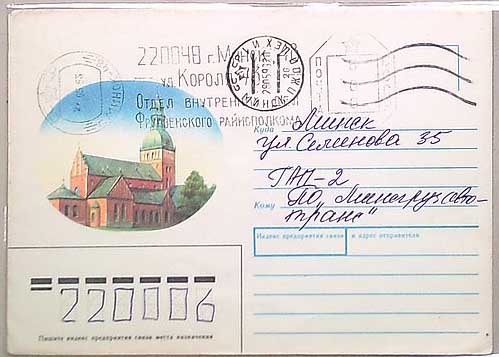 220048 г. Минск
ул. Корол
Отдел внутрен
Фрунзенского райисполкома
Куда Минск
ул. Семенова 35
ГАП-2
Кому ПО „Минскгрузавто-
транс"
Индекс предприятия связи и адрес отправителя
220006
Пишите индекс предприятия связи места назначения